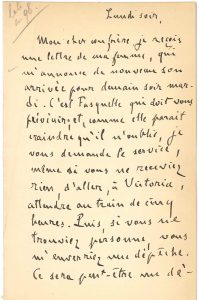 Lundi soir,
Mon cher confrère, je reçois
une lettre de ma femme, qui
m'annonce de nouveau son
arrivée pour demain soir mar-
di. C'est Fasquelle qui doit vous
prévenir; et, comme elle paraît
craindre qu'il n'oublie, je
vous demande le service,
même si vous ne receviez
rien, d'aller, à Victoria,
attendre au train de cinq
heures. Puis, si vous ne
trouviez personne, vous
m'enverriez une dépêche.
Ce sera peut-être une dé-